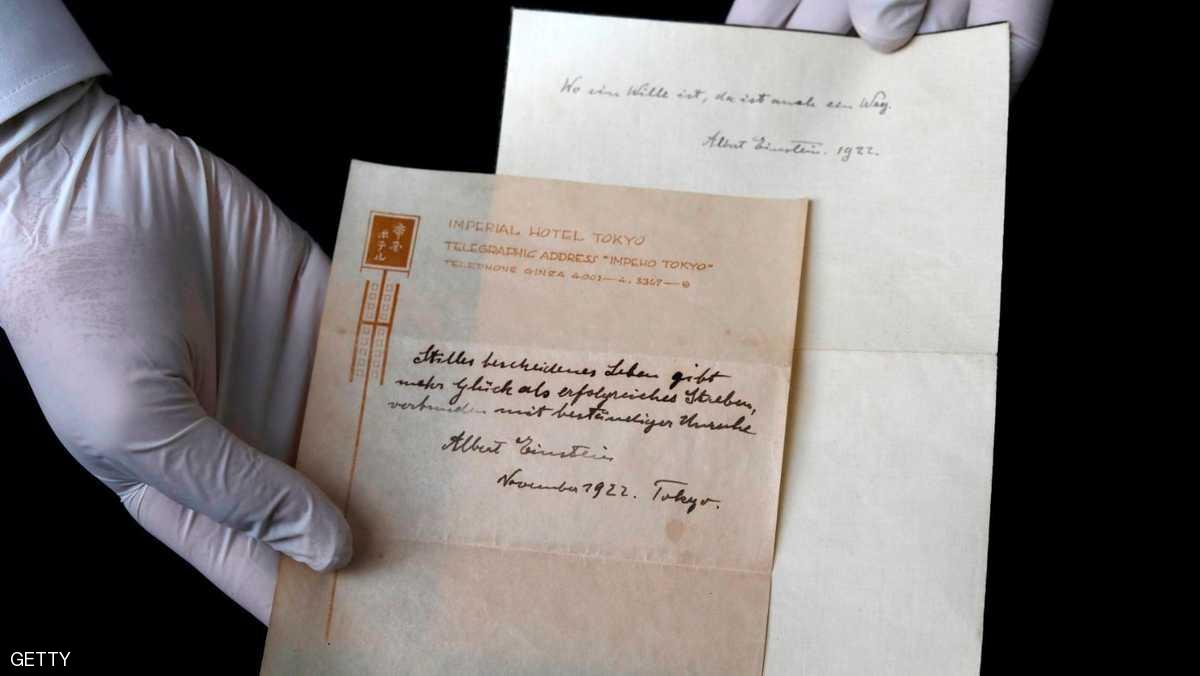 Wo ein Wille ist, da ist auch ein Weg.
Albert Einstein. 1922.
帝国
ホテル
IMPERIAL HOTEL TOKYO
TELEGRAPHIC ADDRESS "IMPEHO TOKYO"
TELEPHONE GINZA
Stilles bescheidenes Leben gibt
mehr Glück als erfolgreiches Streben,
verbunden mit beständiger Unruhe
Albert Einstein
November 1922. Tokyo.
GETTY